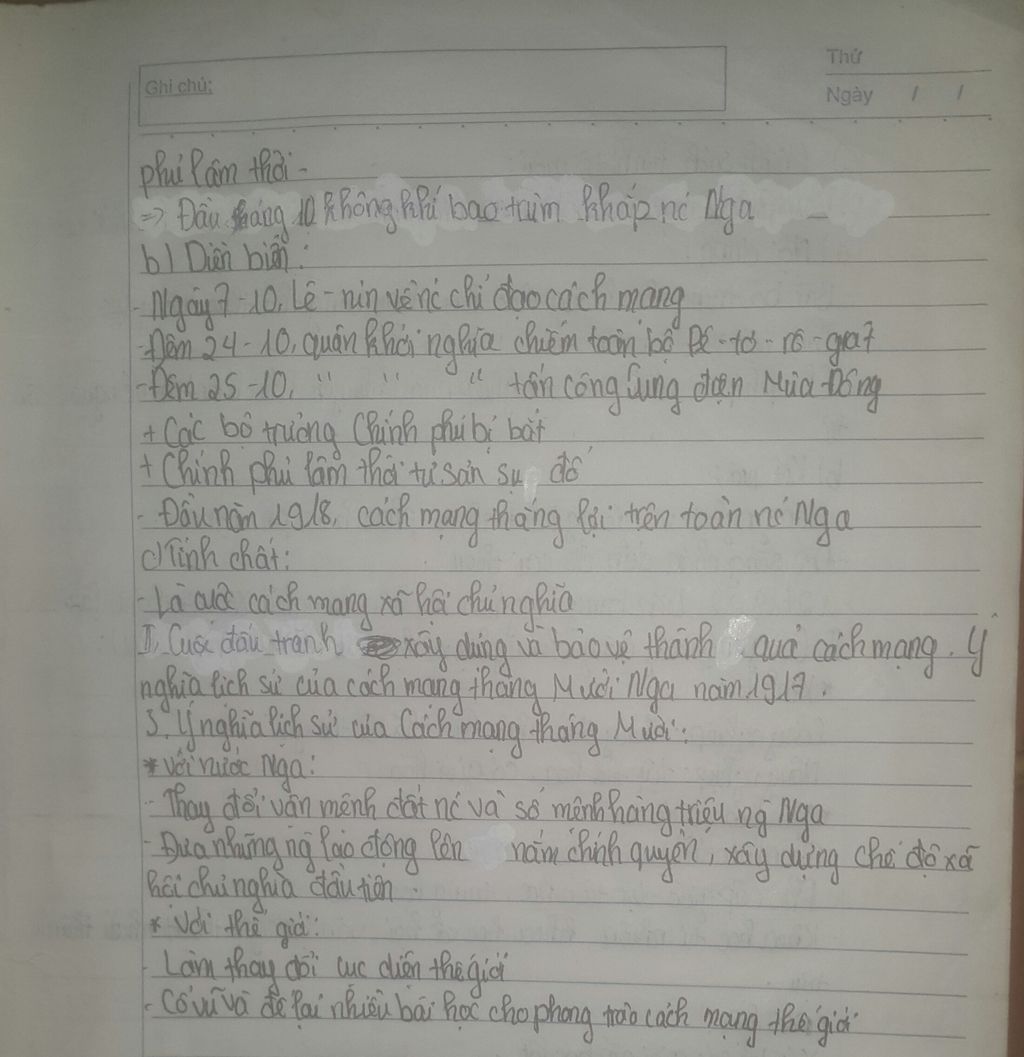 Ghi chú:
Thứ
Ngày / /
phủ lâm thời -
=> Đầu tháng 10 không khí bao trùm khắp nc Nga
b) Diễn biến:
- Ngày 7-10, Lê-nin về nc chỉ đạo cách mạng
- Đêm 24-10, quân khởi nghĩa chiếm toàn bộ Pê-tơ-rô-grat
- Đêm 25-10, " " " tấn công Cung điện Mùa Đông
+ Các bộ trưởng Chính phủ bị bắt
+ Chính phủ lâm thời tư sản sụp đổ
- Đầu năm 1918, cách mạng thắng lợi trên toàn nc Nga
c) Tính chất:
- Là cuộc cách mạng xã hội chủ nghĩa
II. Cuộc đấu tranh xây dựng và bảo vệ thành quả cách mạng. Ý
nghĩa lịch sử của cách mạng tháng Mười Nga năm 1917.
3. Ý nghĩa lịch sử của Cách mạng tháng Mười:
* Với nước Nga:
- Thay đổi vận mệnh đất nc và số mệnh hàng triệu ng Nga
- Đưa những ng lao động lên nắm chính quyền, xây dựng chế độ xã
hội chủ nghĩa đầu tiên
* Với thế giới:
- Làm thay đổi cục diện thế giới
- Cổ vũ và để lại nhiều bài học cho phong trào cách mạng thế giới